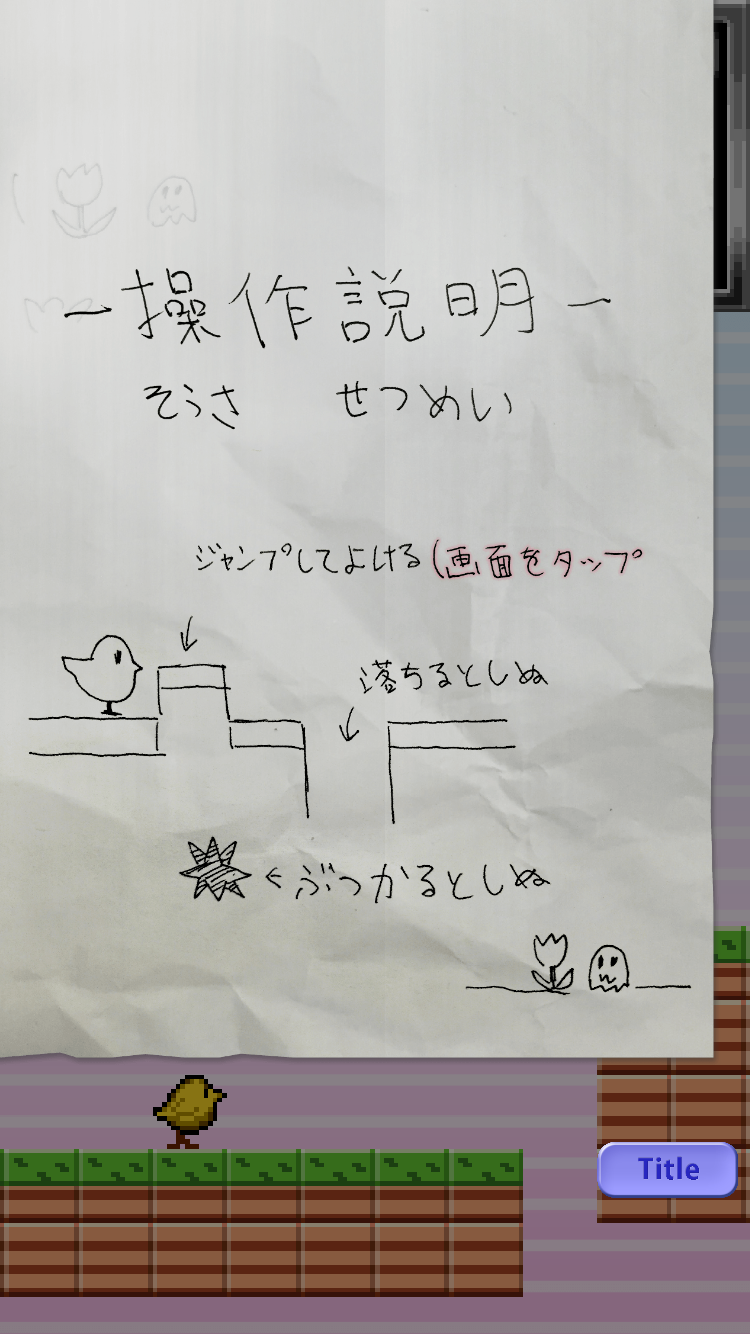 －操作説明－
そうさ せつめい
ジャンプしてよける(画面をタップ
落ちるとしぬ
←ぶつかるとしぬ
Title